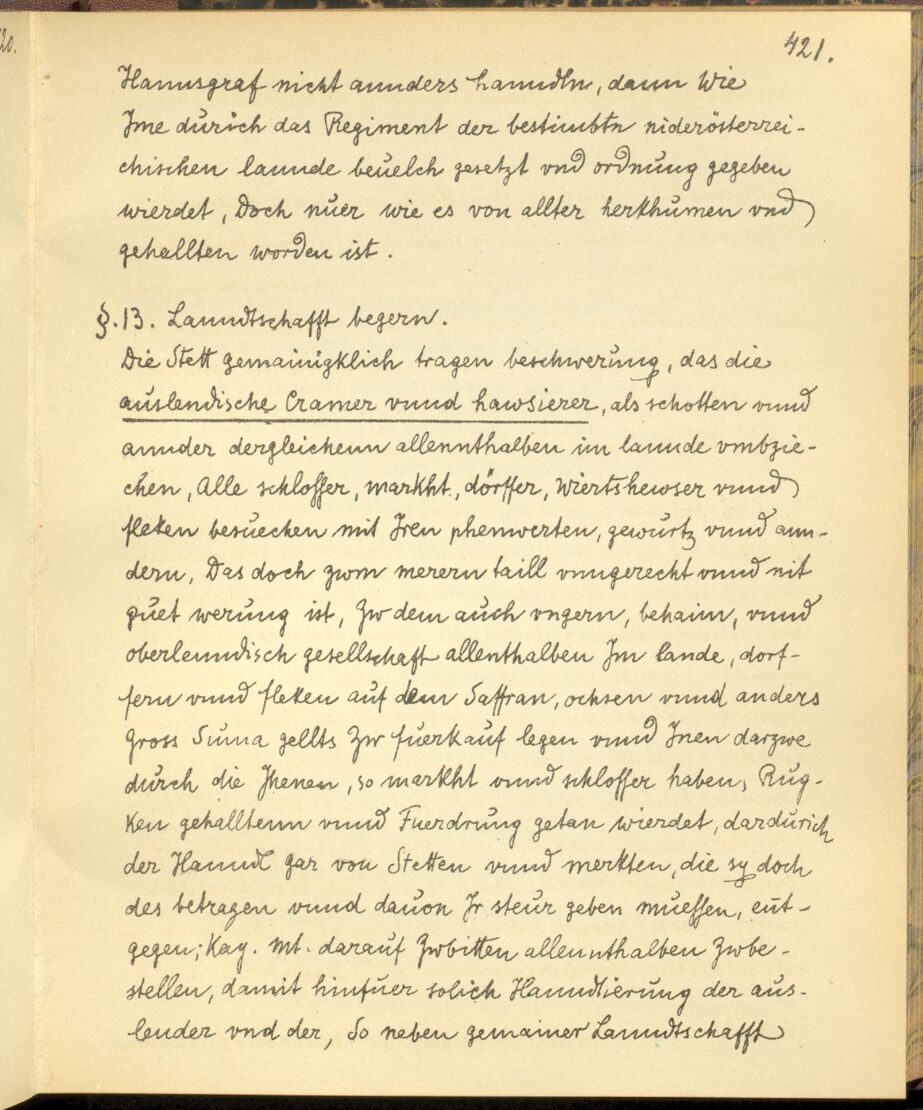 20.
421.
Hannsgraf nicht annders hanndln, dann Wie
Ime durich das Regiment der bestimbtn niderösterrei-
chischen lannde beuelch gesetzt vnd ordnung gegeben
wierdet, Doch nuer wie es von allter herkhumen vnd
gehallten worden ist.
§.13. Lanndtschafft begern.
Die Stett gemainigklich tragen beschwerung, das die
auslendische Cramer vnnd hawsierer, als schotten vnnd
annder dergleichenn allennthalben im lannde vmbzie-
chen, Alle schlosser, markht, dörffer, Wiertshewser vnnd
fleken besuechen mit Iren phenwerten, gewürtz vnnd ann-
dern, Das doch zwm merern taill vnngerecht vnnd nit
guet werung ist, Zw dem auch vngern, behaim, vnnd
oberlenndisch gesellschaft allenthalben Im lande, dorf-
fern vnnd fleken auf dem Saffran, ochsen vnnd anders
Gross Suma gellts Zw fuerkauf legen vnnd Inen darzwe
durch die Jhenen, so markht vnnd schlosser haben, Rug-
ken gehalltenn vnnd Fuerdrung getan wierdet, dardurich
der Hanndl gar von Stetten vnnd merkten, die sy doch
des betragen vnnd dauon Ir steur geben muessen, ent-
gegen; Kay. Mt. darauf Zwbitten allennthalben Zwbe-
stellen, damit hinfuer solich Hanndtierung der aus-
lender vnd der, So neben gemainer Lanndtschafft